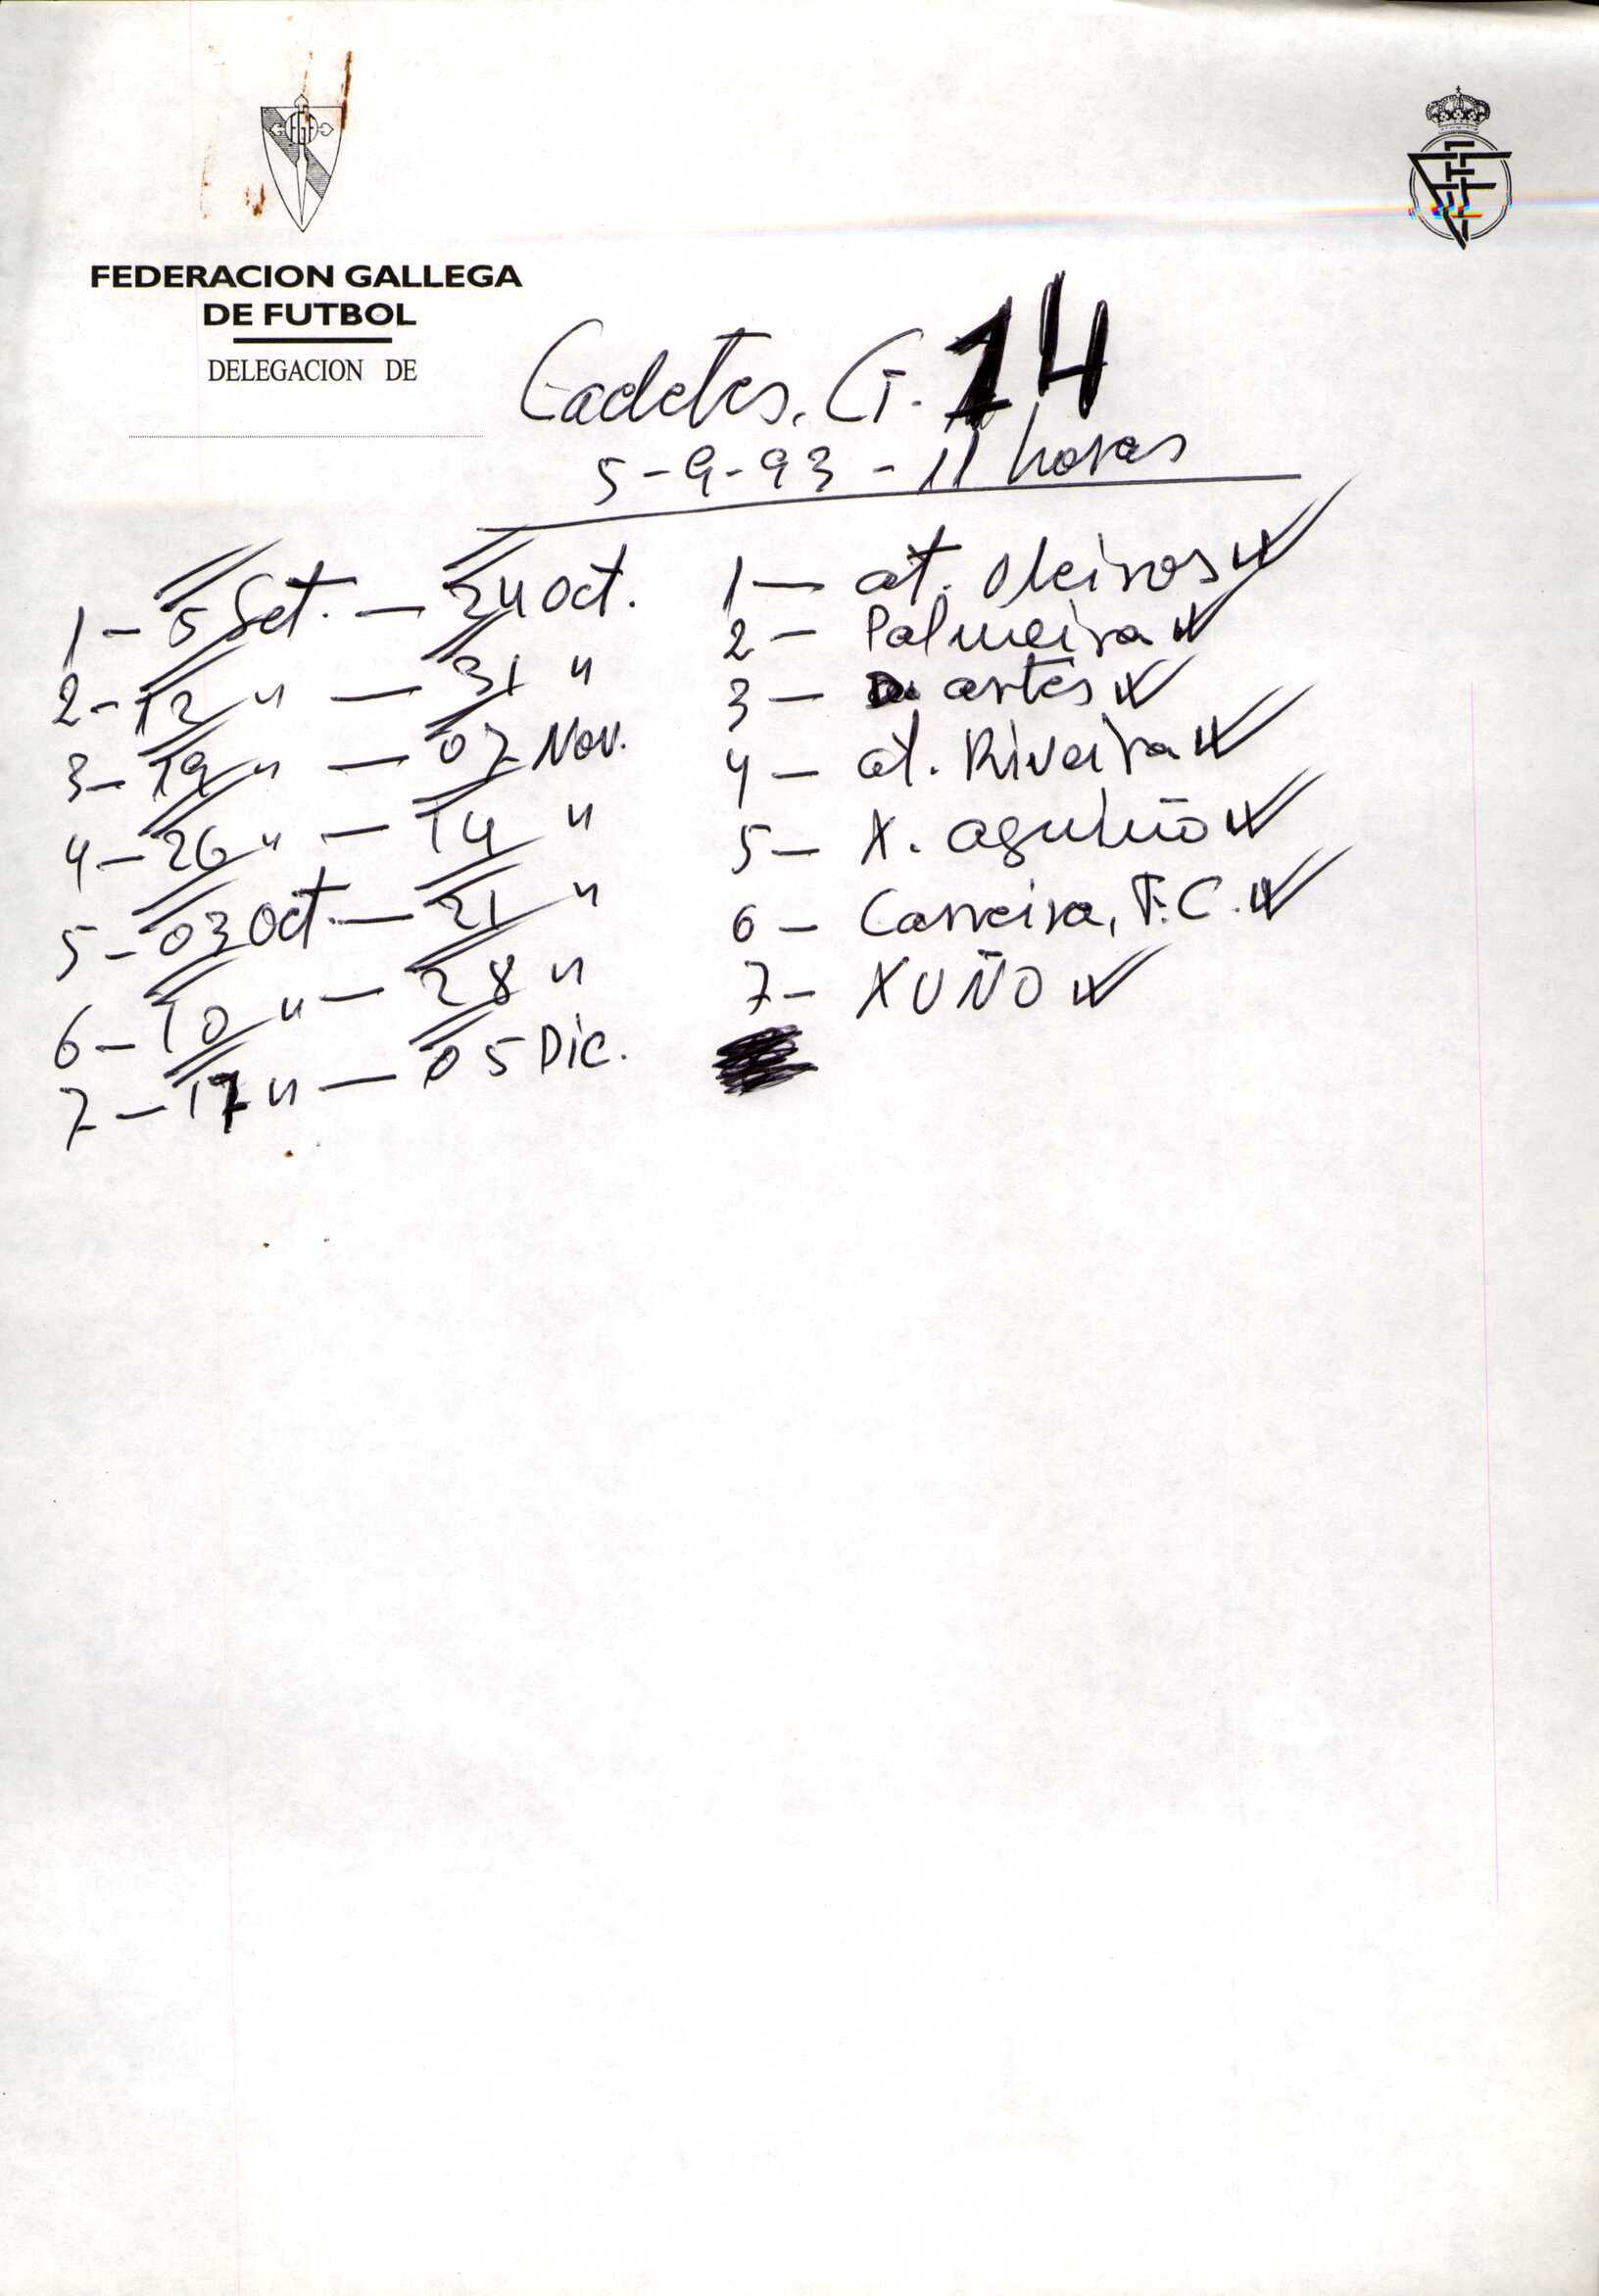 FGF
FEDERACION GALLEGA
DE FUTBOL
DELEGACION DE
Cadetes. G-14
5-9-93 - 11 horas
1 - 5 Set. - 24 Oct.
2 - 12 " - 31 "
3 - 19 " - 07 Nov.
4 - 26 " - 14 "
5 - 03 Oct. - 21 "
6 - 10 " - 28 "
7 - 17 " - 05 Dic.
1 - at. Oleiros
2 - Palmeira
3 - artes
4 - at. Riveira
5 - X. aguiño
6 - Carreira, F.C.
7 - XUÑO